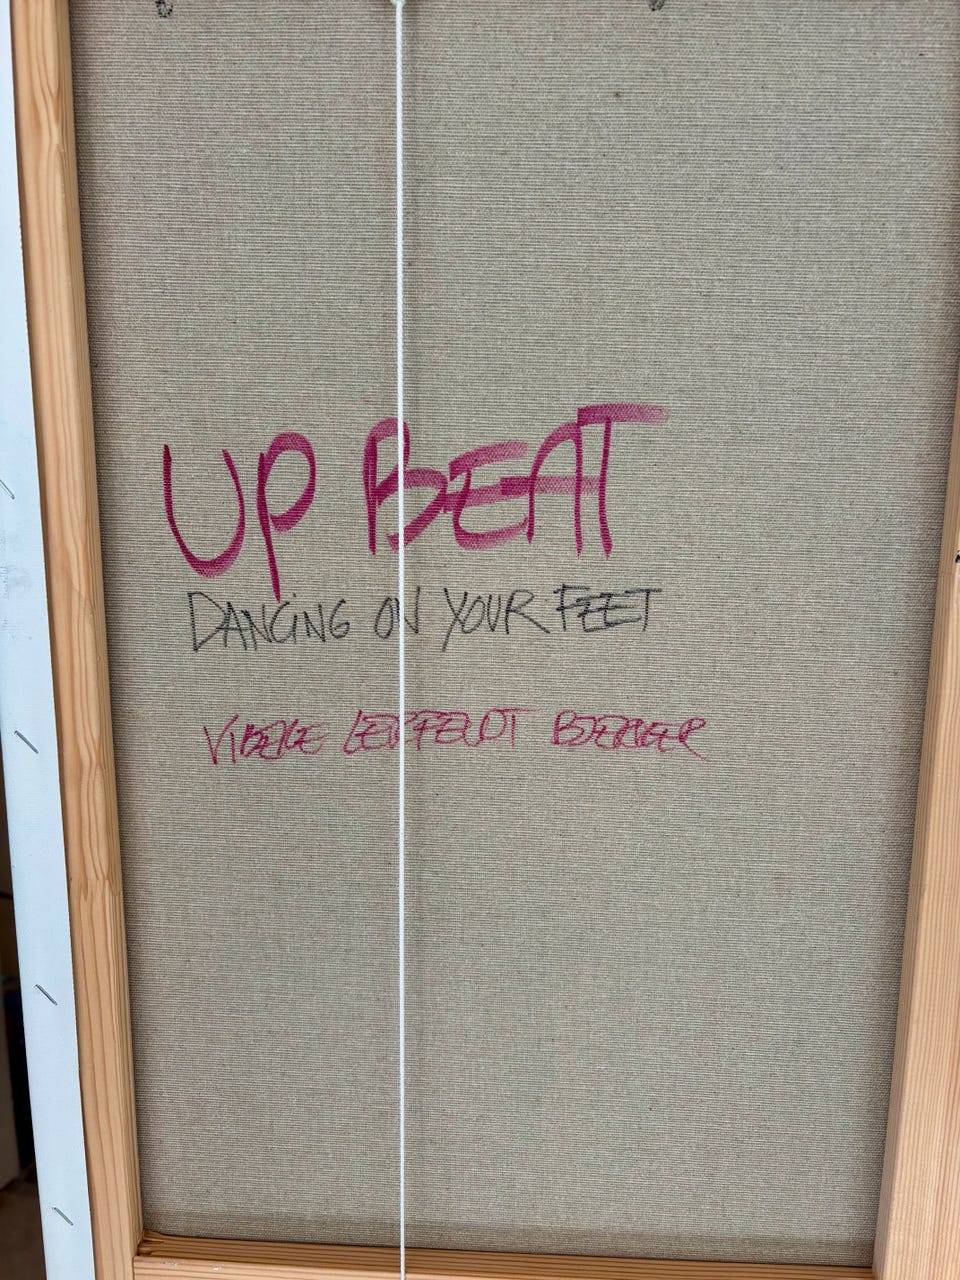 UP BEAT
DANCING ON YOUR FEET
VIBEKE LERFELDT BERGER